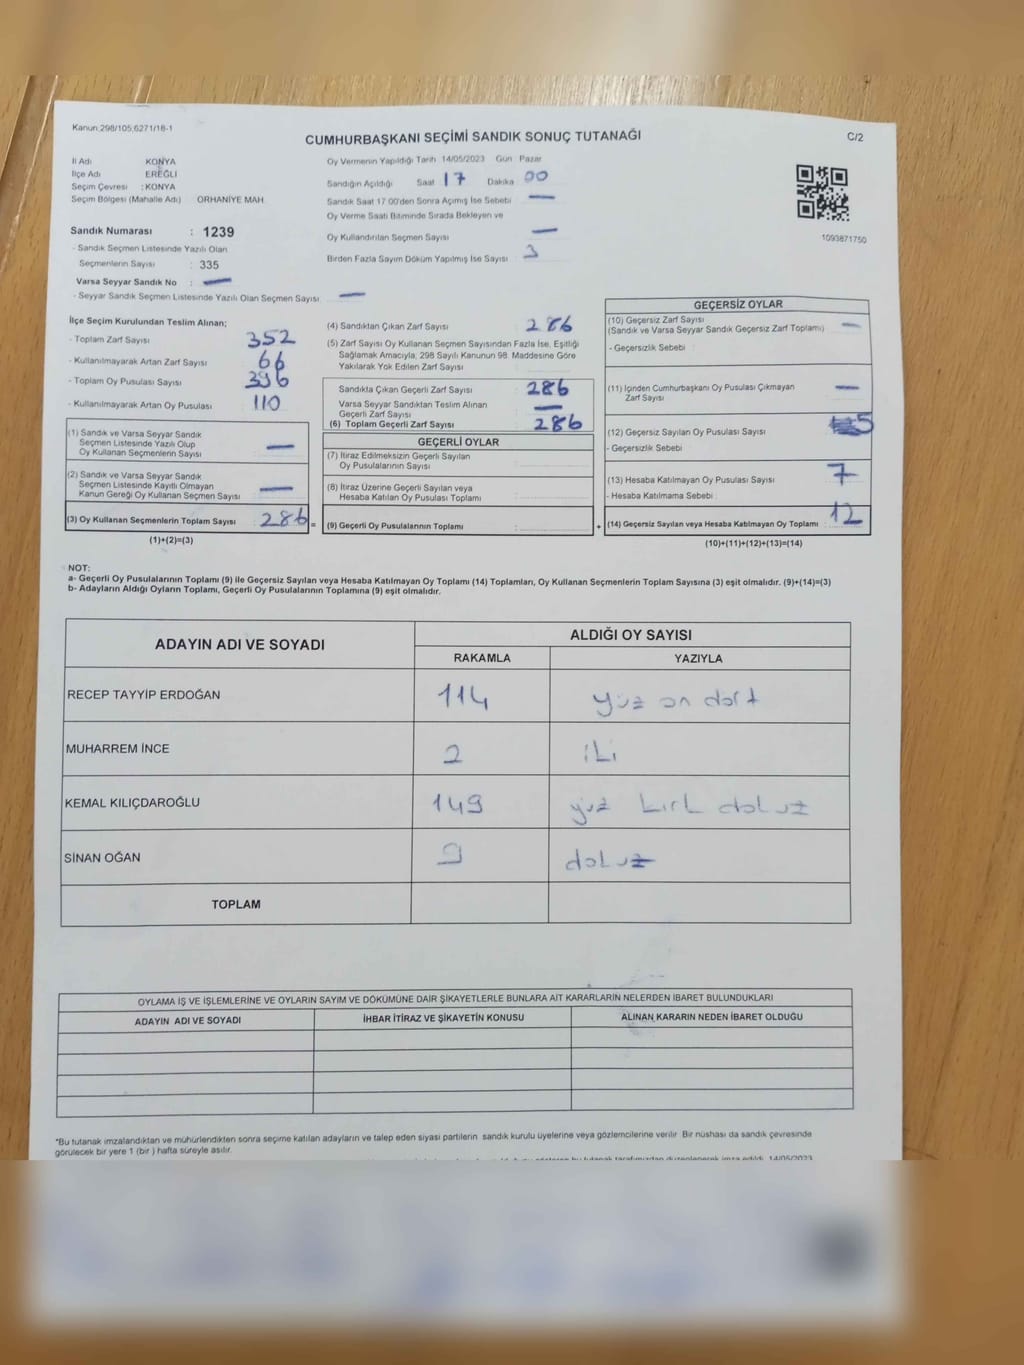 Kanun:298/105,6271/18-1
CUMHURBAŞKANI SEÇİMİ SANDIK SONUÇ TUTANAĞI
C/2
İl Adı KONYA
İlçe Adı EREĞLİ
Seçim Çevresi : KONYA
Seçim Bölgesi (Mahalle Adı) ORHANİYE MAH.
Sandık Numarası : 1239
- Sandık Seçmen Listesinde Yazılı Olan
Seçmenlerin Sayısı : 335
Varsa Seyyar Sandık No : —
- Seyyar Sandık Seçmen Listesinde Yazılı Olan Seçmen Sayısı —
Oy Vermenin Yapıldığı Tarih 14/05/2023 Gün Pazar
Sandığın Açıldığı Saat 17 Dakika 00
Sandık Saat 17:00'den Sonra Açımış İse Sebebi —
Oy Verme Saati Bitiminde Sırada Bekleyen ve
Oy Kullandırılan Seçmen Sayısı —
Birden Fazla Sayım Döküm Yapılmış İse Sayısı 3
1093871750
İlçe Seçim Kurulundan Teslim Alınan;
- Toplam Zarf Sayısı 352
- Kullanılmayarak Artan Zarf Sayısı 66
- Toplam Oy Pusulası Sayısı 396
- Kullanılmayarak Artan Oy Pusulası 110
(1) Sandık ve Varsa Seyyar Sandık
Seçmen Listesinde Yazılı Olup
Oy Kullanan Seçmenlerin Sayısı —
(2) Sandık ve Varsa Seyyar Sandık
Seçmen Listesinde Kayıtlı Olmayan
Kanun Gereği Oy Kullanan Seçmen Sayısı —
(3) Oy Kullanan Seçmenlerin Toplam Sayısı : 286 =
(1)+(2)=(3)
(4) Sandıktan Çıkan Zarf Sayısı 286
(5) Zarf Sayısı Oy Kullanan Seçmen Sayısından Fazla İse, Eşitliği
Sağlamak Amacıyla, 298 Sayılı Kanunun 98. Maddesine Göre
Yakılarak Yok Edilen Zarf Sayısı
Sandıkta Çıkan Geçerli Zarf Sayısı : 286
Varsa Seyyar Sandıktan Teslim Alınan
Geçerli Zarf Sayısı —
(6) Toplam Geçerli Zarf Sayısı : 286
GEÇERLİ OYLAR
(7) İtiraz Edilmeksizin Geçerli Sayılan
Oy Pusulalarının Sayısı
(8) İtiraz Üzerine Geçerli Sayılan veya
Hesaba Katılan Oy Pusulası Toplamı
(9) Geçerli Oy Pusulalarının Toplamı : +
GEÇERSİZ OYLAR
(10) Geçersiz Zarf Sayısı
(Sandık ve Varsa Seyyar Sandık Geçersiz Zarf Toplamı) —
- Geçersizlik Sebebi :
(11) İçinden Cumhurbaşkanı Oy Pusulası Çıkmayan
Zarf Sayısı —
(12) Geçersiz Sayılan Oy Pusulası Sayısı 5
- Geçersizlik Sebebi
(13) Hesaba Katılmayan Oy Pusulası Sayısı 7
- Hesaba Katılmama Sebebi :
(14) Geçersiz Sayılan veya Hesaba Katılmayan Oy Toplamı 12
(10)+(11)+(12)+(13)=(14)
NOT:
a- Geçerli Oy Pusulalarının Toplamı (9) ile Geçersiz Sayılan veya Hesaba Katılmayan Oy Toplamı (14) Toplamları, Oy Kullanan Seçmenlerin Toplam Sayısına (3) eşit olmalıdır. (9)+(14)=(3)
b- Adayların Aldığı Oyların Toplamı, Geçerli Oy Pusulalarının Toplamına (9) eşit olmalıdır.
ADAYIN ADI VE SOYADI ALDIĞI OY SAYISI
RAKAMLA YAZIYLA
RECEP TAYYİP ERDOĞAN 114 yüz on dört
MUHARREM İNCE 2 iki
KEMAL KILIÇDAROĞLU 149 yüz kırk dokuz
SİNAN OĞAN 9 dokuz
TOPLAM
OYLAMA İŞ VE İŞLEMLERİNE VE OYLARIN SAYIM VE DÖKÜMÜNE DAİR ŞİKAYETLERLE BUNLARA AİT KARARLARIN NELERDEN İBARET BULUNDUKLARI
ADAYIN ADI VE SOYADI İHBAR İTİRAZ VE ŞİKAYETİN KONUSU ALINAN KARARIN NEDEN İBARET OLDUĞU
*Bu tutanak imzalandıktan ve mühürlendikten sonra seçime katılan adayların ve talep eden siyasi partilerin sandık kurulu üyelerine veya gözlemcilerine verilir. Bir nüshası da sandık çevresinde
görülecek bir yere 1 (bir) hafta süreyle asılır.